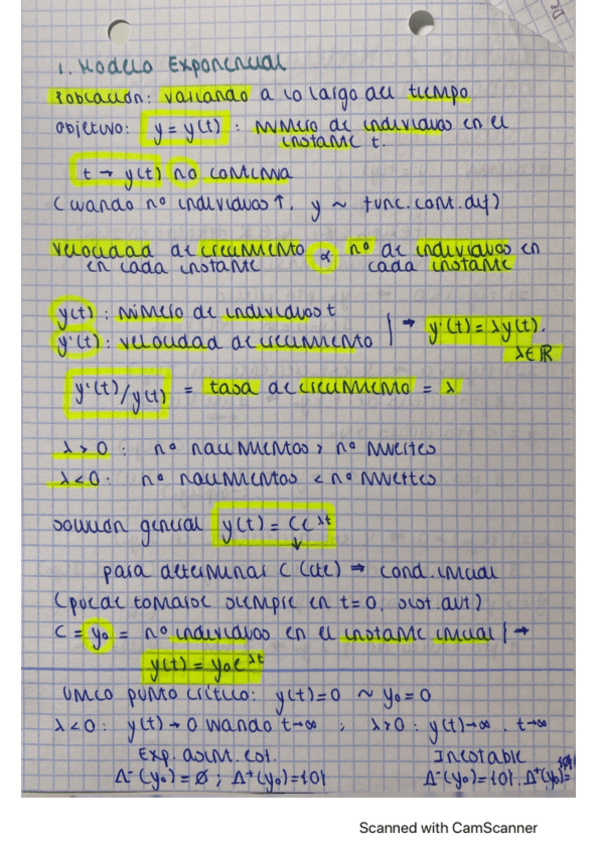 1. Modelo Exponencial
Población: variando a lo largo del tiempo
Objetivo: y = y(t) : número de individuos en el
instante t.
t → y(t) no continua
(cuando nº individuos ↑, y ~ func. cont. dif)
velocidad de crecimiento ∝ nº de individuos en
en cada instante cada instante
y(t) : número de individuos t
y'(t) : velocidad de crecimiento | → y'(t) = λy(t).
λ∈ℝ
y'(t)/y(t) = tasa de crecimiento = λ
λ > 0 : nº nacimientos > nº muertes
λ < 0 : nº nacimientos < nº muertes
solución general y(t) = Ce^λt
↓
para determinar C (cte) → cond. inicial
(puede tomarse siempre en t=0, sist. aut)
C = y₀ = nº individuos en el instante inicial | →
y(t) = y₀e^λt
Único punto crítico: y(t)=0 ~ y₀=0
λ<0: y(t)→0 cuando t→∞ ; λ>0: y(t)→∞ . t→∞
Exp. asint. est. Inestable
Δ⁻(y₀) = ∅ ; Δ⁺(y₀)={0} Δ⁻(y₀)={0}. Δ⁺(y₀)=
Scanned with CamScanner